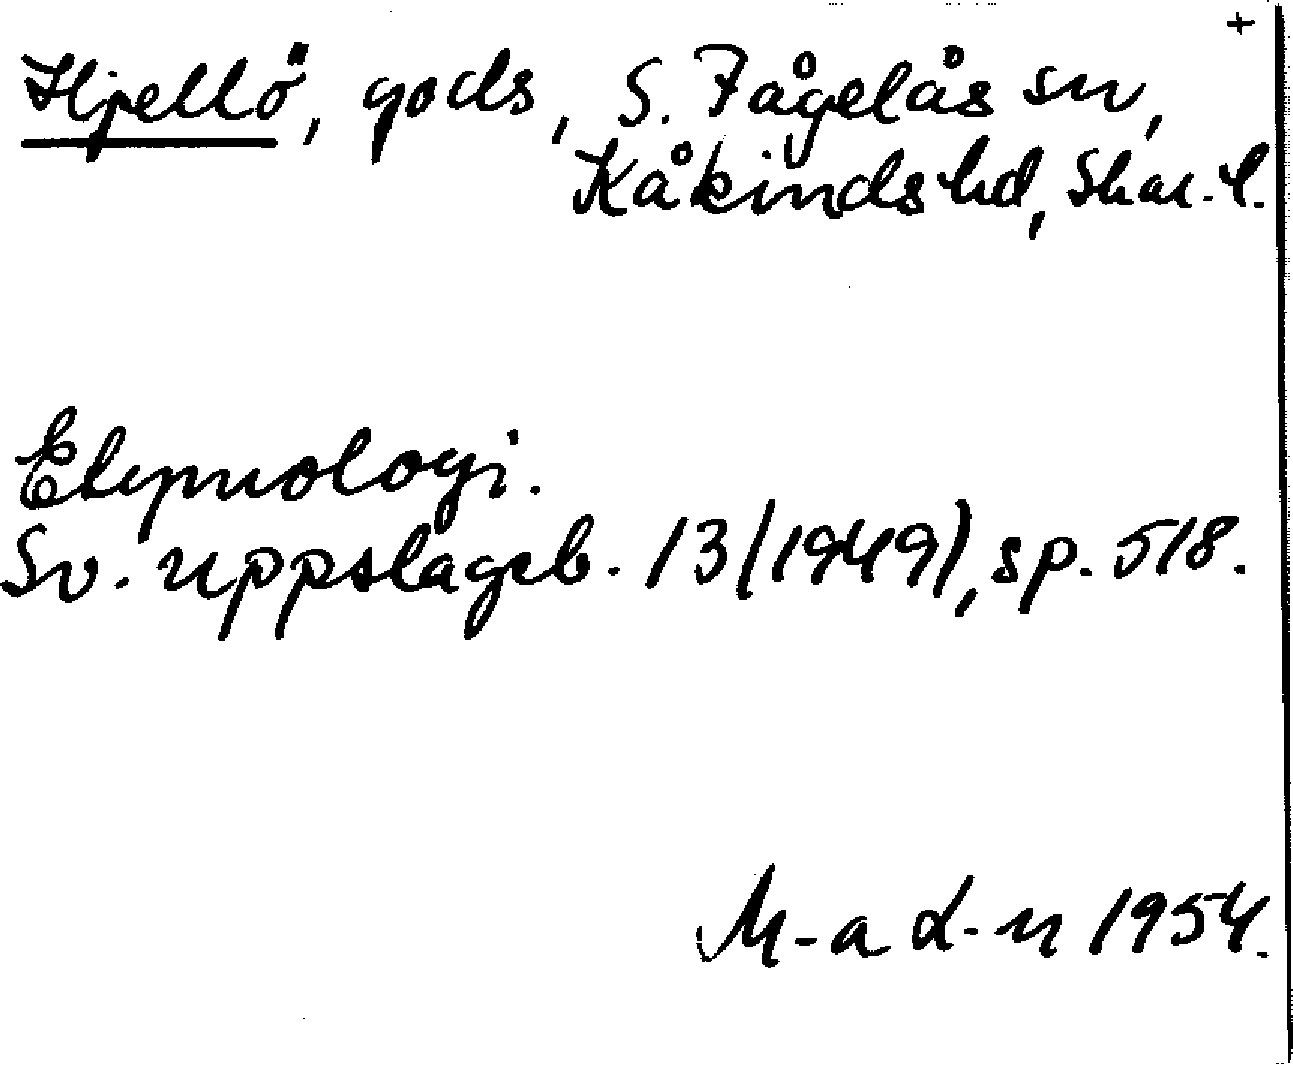 +
Hjellö, gods, S. Fågelås sn,
Kåkinds hd, Skar. l.
Etymologi.
Sv. uppslagsb. 13 (1949), sp. 518.
M-a L-n 1954.